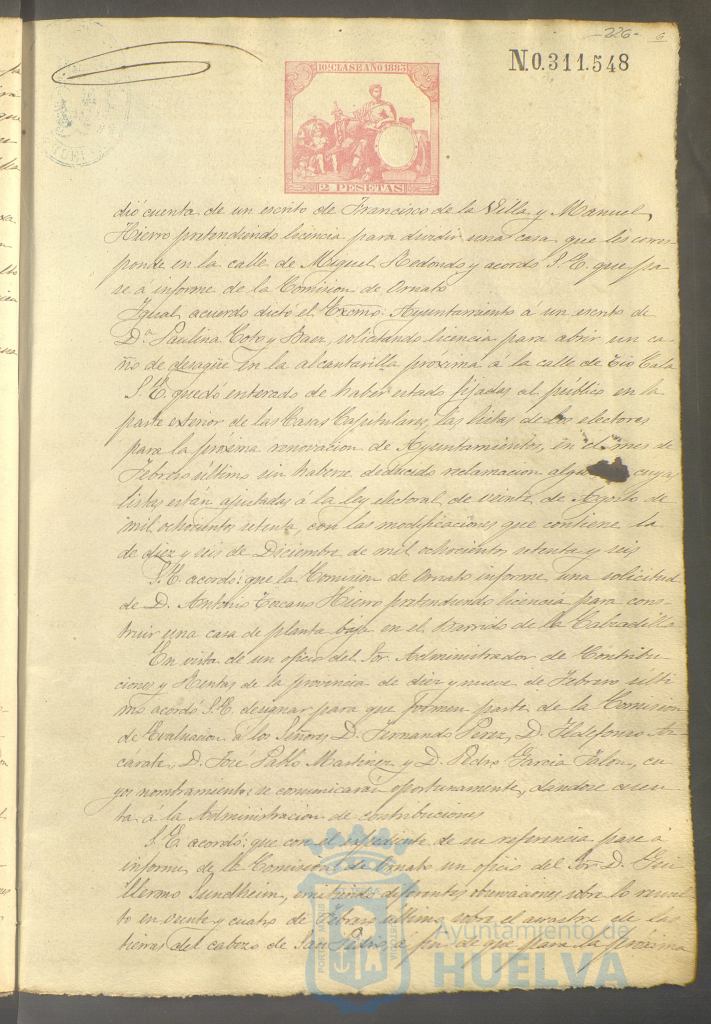 -226- 6
N.0.311.548
10ª CLASE AÑO 1883
2 PESETAS
dió cuenta de un escrito de Francisco de la Villa y Manuel
Hierro pretendiendo licencia para dividir una casa que les corres
ponde en la calle de Miguel Redondo y acordó S. E. que pa
se a informe de la Comision de Ornato
Igual acuerdo dictó el Excmo. Ayuntamiento á un escrito de
D.ª Paulina Coto y Baez, solicitando licencia para abrir un ca
ño de desagüe en la alcantarilla proxima á la calle de Tio Cala
S. E. quedó enterado de haber estado fijadas al público en la
parte exterior de las Casas Capitulares, las listas de los electores
para la próxima renovacion de Ayuntamientos, en el mes de
Febrero último sin haberse deducido reclamacion cuyas
listas están ajustadas á la ley electoral, de veinte de Agosto de
mil ochocientos setenta, con las modificaciones que contiene la
de diez y seis de Diciembre de mil ochocientos setenta y seis
S. E. acordó: que la Comision de Ornato informe, una solicitud
de D. Antonio Toscano Hierro pretendiendo licencia para cons-
truir una casa de planta baja en el barrido de la Calzadilla
En vista de un oficio del Sor. Administrador de Contribu
ciones y Rentas de la provincia de diez y nueve de Febrero ulti
mo acordó S. E. designar para que formen parte de la Comision
de Evaluacion á los Señores D. Fernando Perez, D. Ildefonso Az
carate, D. José Pablo Martinez y D. Pedro Garcia Jalon, cu
yos nombramientos se comunicarán oportunamente, dandose cuen
ta á la Administracion de contribuciones
S. E. acordó: que con el espediente de su referencia pase á
informe de la Comision de Ornato un oficio del Sor. D. Gui
llermo Sundheim, emitiendo diferentes observaciones sobre lo resuel
to en veinte y cuatro de Febrero ultimo sobre el arrastre de las
tierras del cabezo de San Pedro, á fin de que para la próxima
Ayuntamiento de
HUELVA